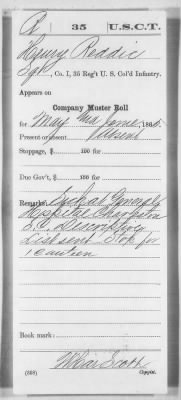 R 35 U.S.C.T.
Henry Reddic
Sgt, Co. I, 35 Reg't U. S. Col'd Infantry.
Appears on
Company Muster Roll
for May and June, 1866.
Present or absent Absent
Stoppage, $ 100 for
Due Gov't, $ 100 for
Remarks: Sick at General
Hospital Charleston
S.C. Descriptive
List sent Stop for
1 canteen
Book mark:
(358) Copyist.